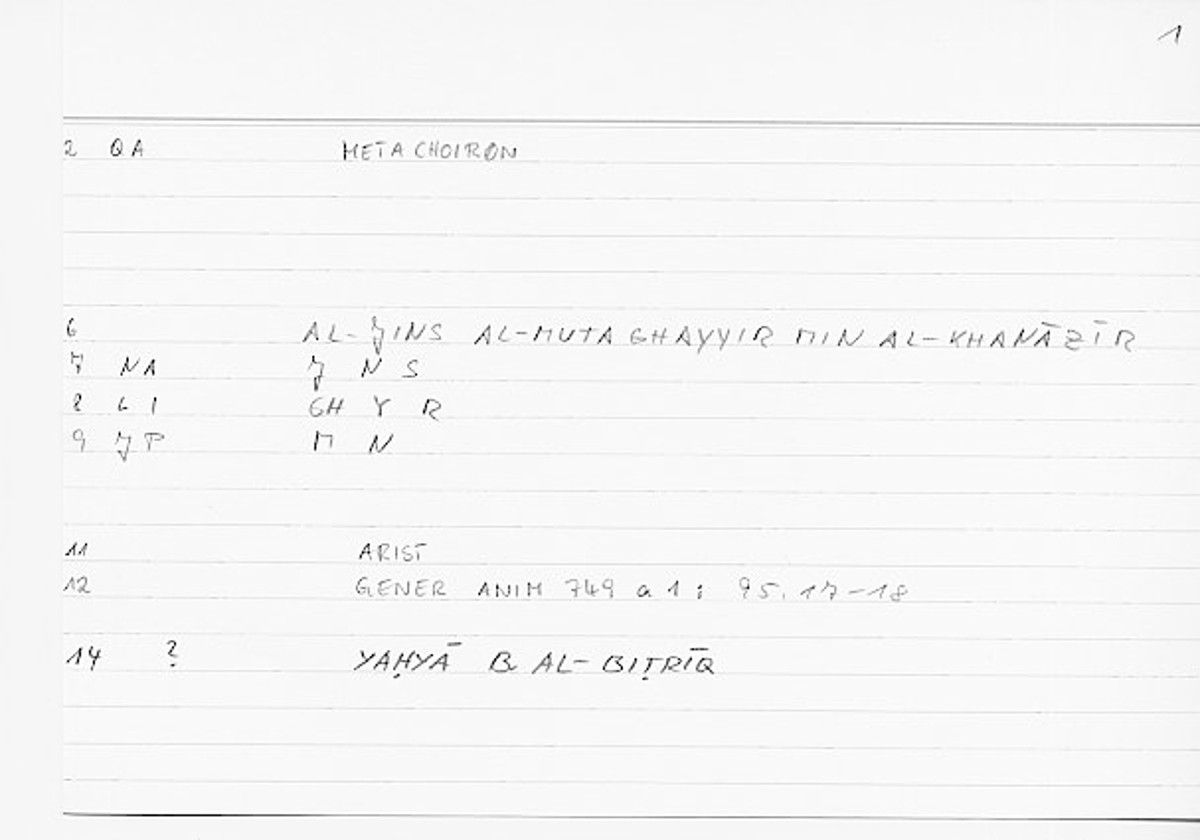 1
2 QA METACHOIRON
6 AL-JINS AL-MUTAGHAYYIR MIN AL-KHANĀZĪR
7 NA J N S
8 GI GH Y R
9 JP M N
11 ARIST
12 GENER ANIM 749 a 1 : 95.17-18
14 ? YAḤYĀ B AL-BIṬRĪQ